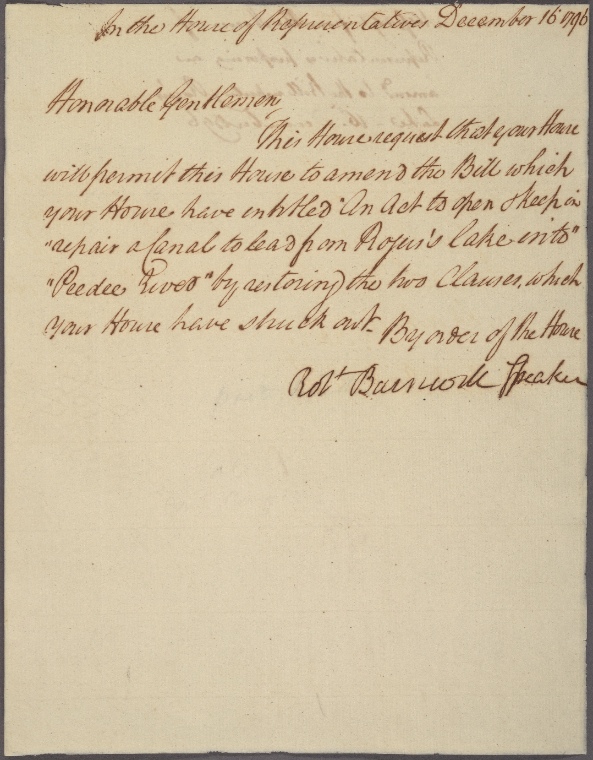 In the House of Representatives December 16 1796
Honorable Gentlemen,
This House request that your House
will permit this House to amend the Bill which
your House have entitled "An Act to open & keep in
"repair a Canal to lead from Roger's Lake into"
"Peedee River" by restoring the two Clauses, which
your House have struck out.
By order of the House
Robt Barnwell Speaker